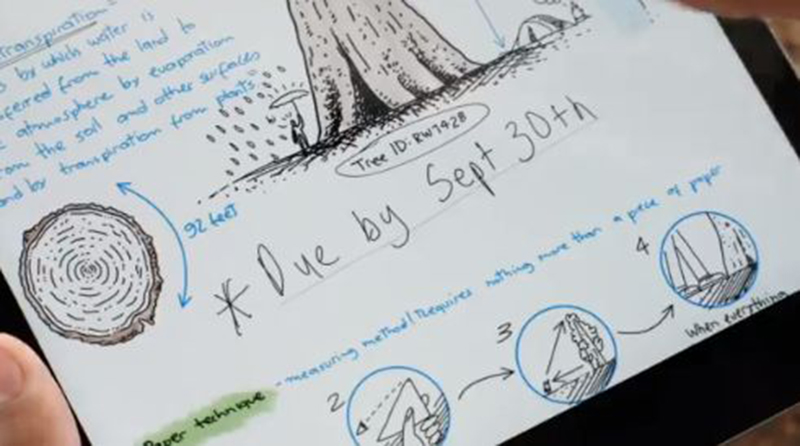 Transpiration"
by which water is
ferred from the land to
atmosphere by evaporation
om the soil and other surfaces
and by transpiration from plants"
Tree ID: RW7428
92 feet
* Due by Sept 30th
- measuring method/Requires nothing more than a piece of paper
Paper technique
2
3
4
When everything